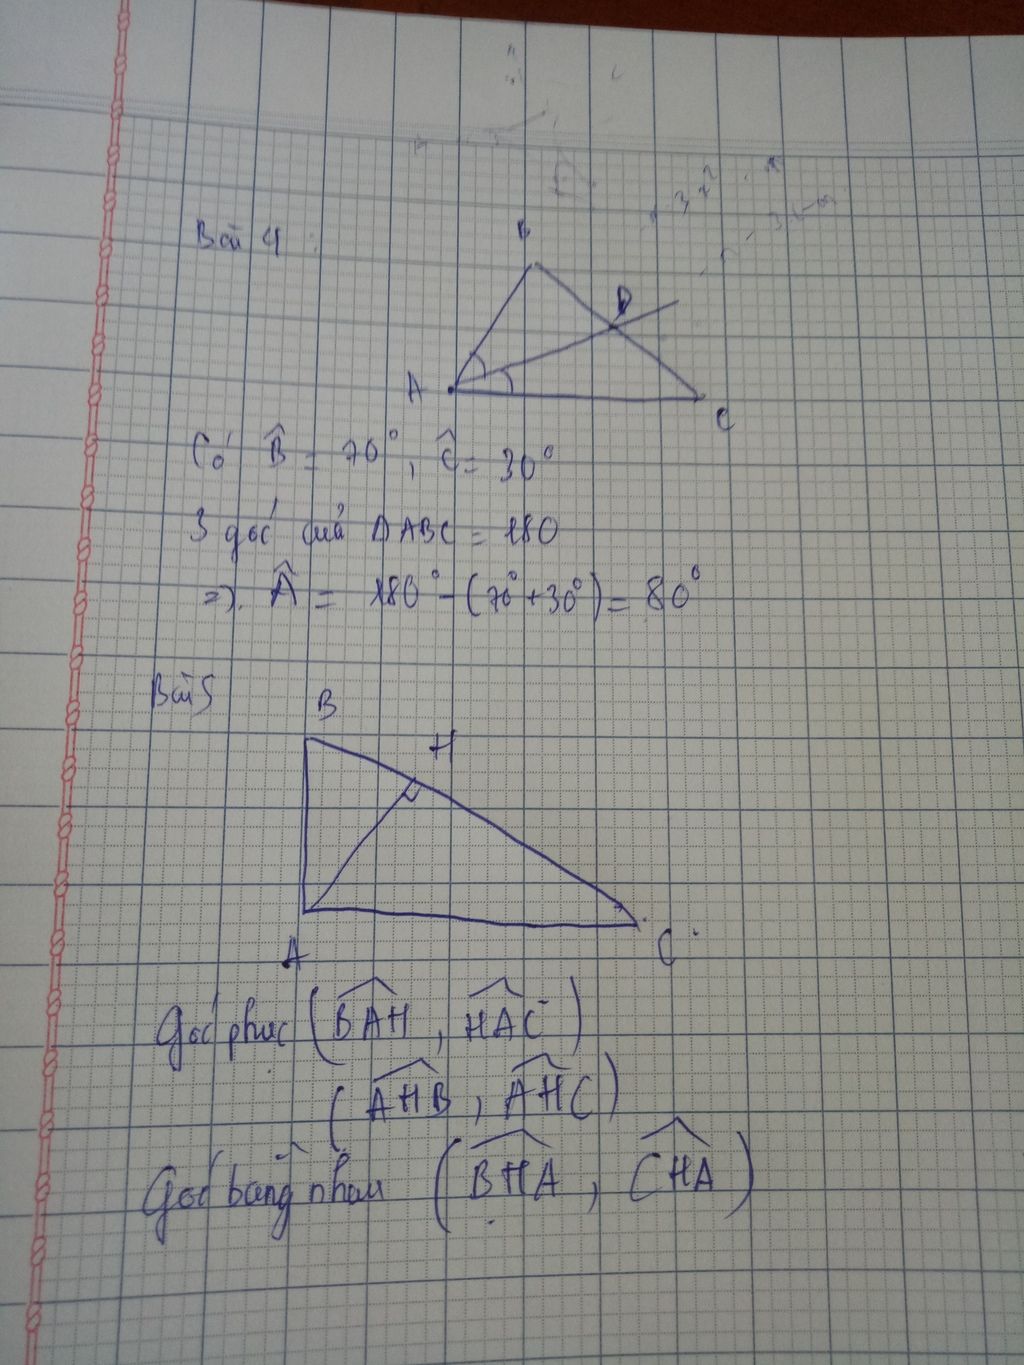 Bài 4 :
B
D
A
C
Có B̂ = 70°, Ĉ = 30°
3 góc của ΔABC = 180
=). Â = 180° - (70° + 30°) = 80°
Bài 5
B
H
A
C
Góc phuc (BAH, HAC)
(AHB, AHC)
Góc bằng nhau (BHA, CHA)